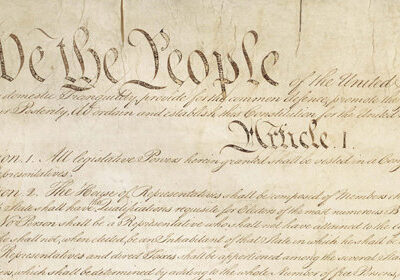 We the People of the United
domestic Tranquility, provide for the common defence, promote the
Posterity, do ordain and establish this Constitution for the United
Article. I.
ion. 1. All legislative Powers herein granted shall be vested in a Con
presentatives.
ion. 2. The House of Representatives shall be composed of Members chos
State shall have the Qualifications requisite for Electors of the most numerous B
No Person shall be a Representative who shall not have attained to the
he shall not, when elected, be an Inhabitant of that State in which he shall be
Representatives and direct Taxes shall be apportioned among the several State
ns, which shall be determined by adding to the whole Number of free Persons,